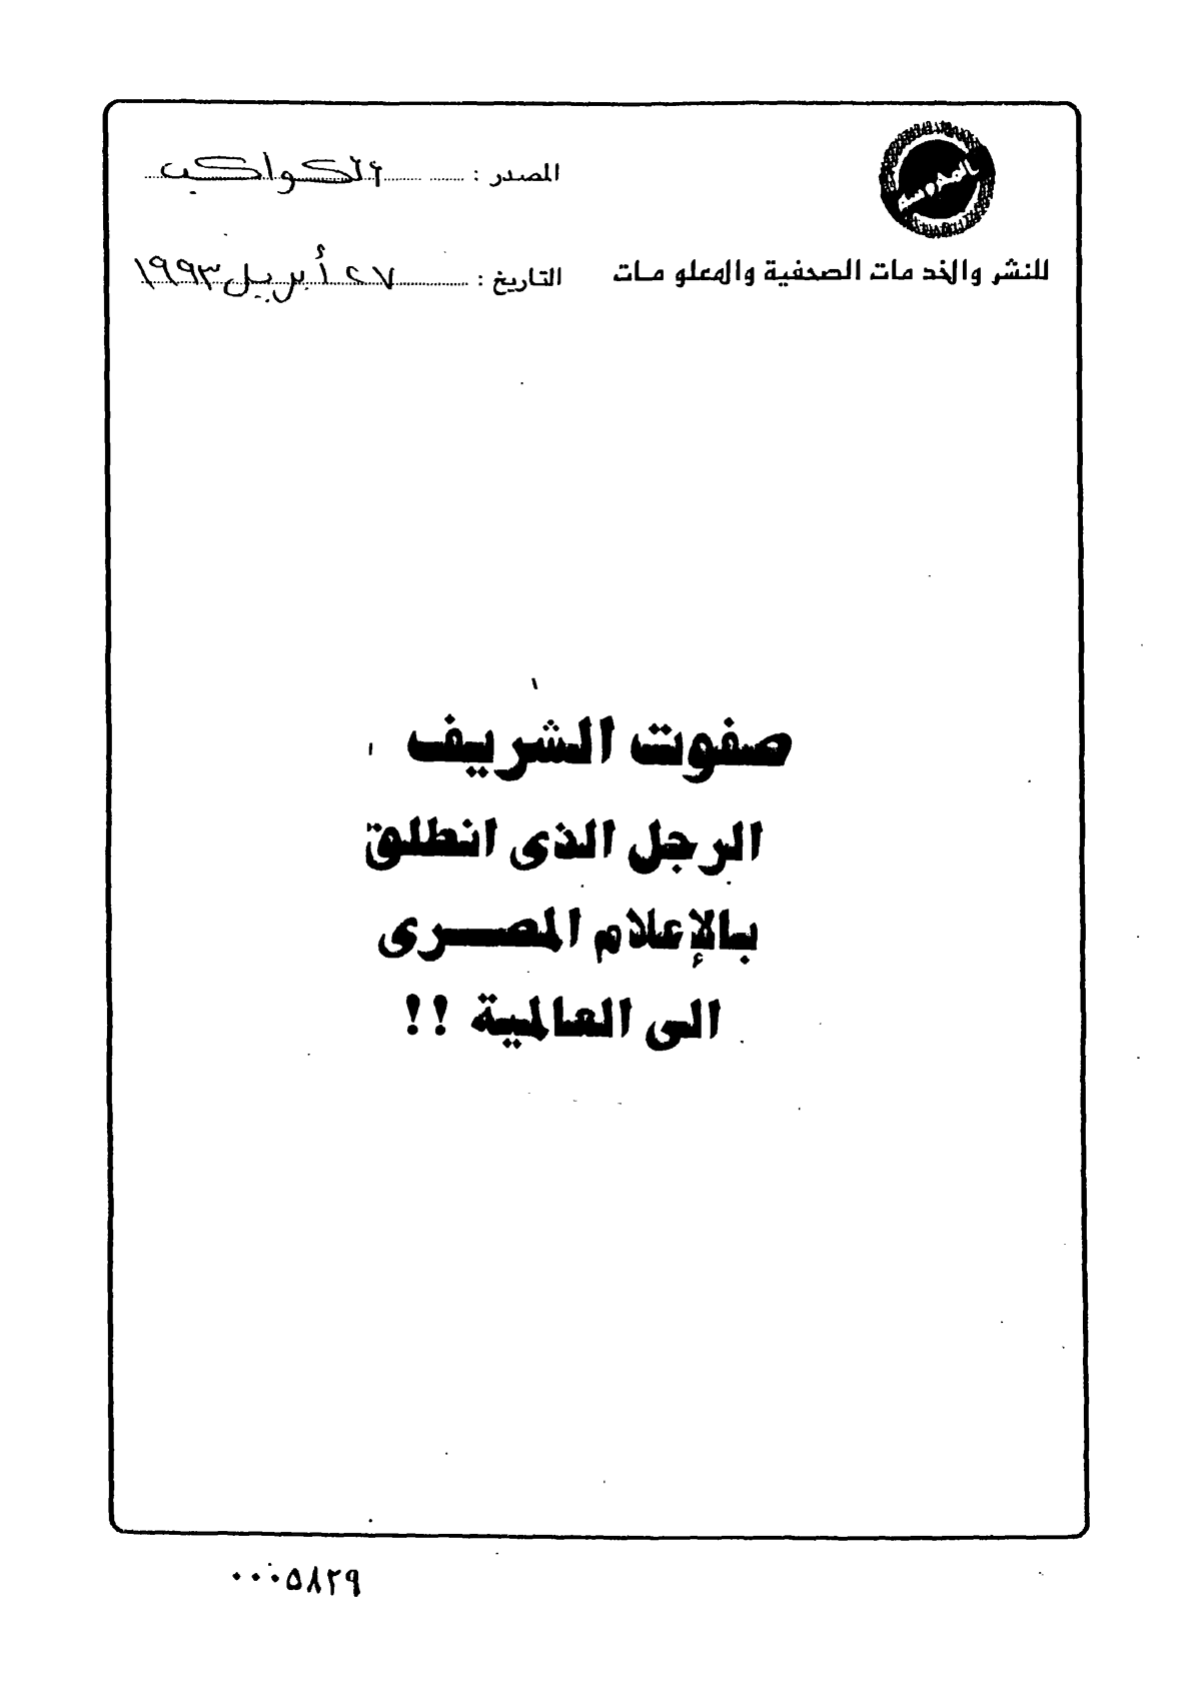 المحروسة
المصدر : الكواكب
للنشر والخدمات الصحفية والمعلومات
التاريخ : ٢٧ أبريل ١٩٩٣
صفوت الشريف
الرجل الذى انطلق
بالإعلام المصرى
الى العالمية !!
٠٠٠٥٨٢٩